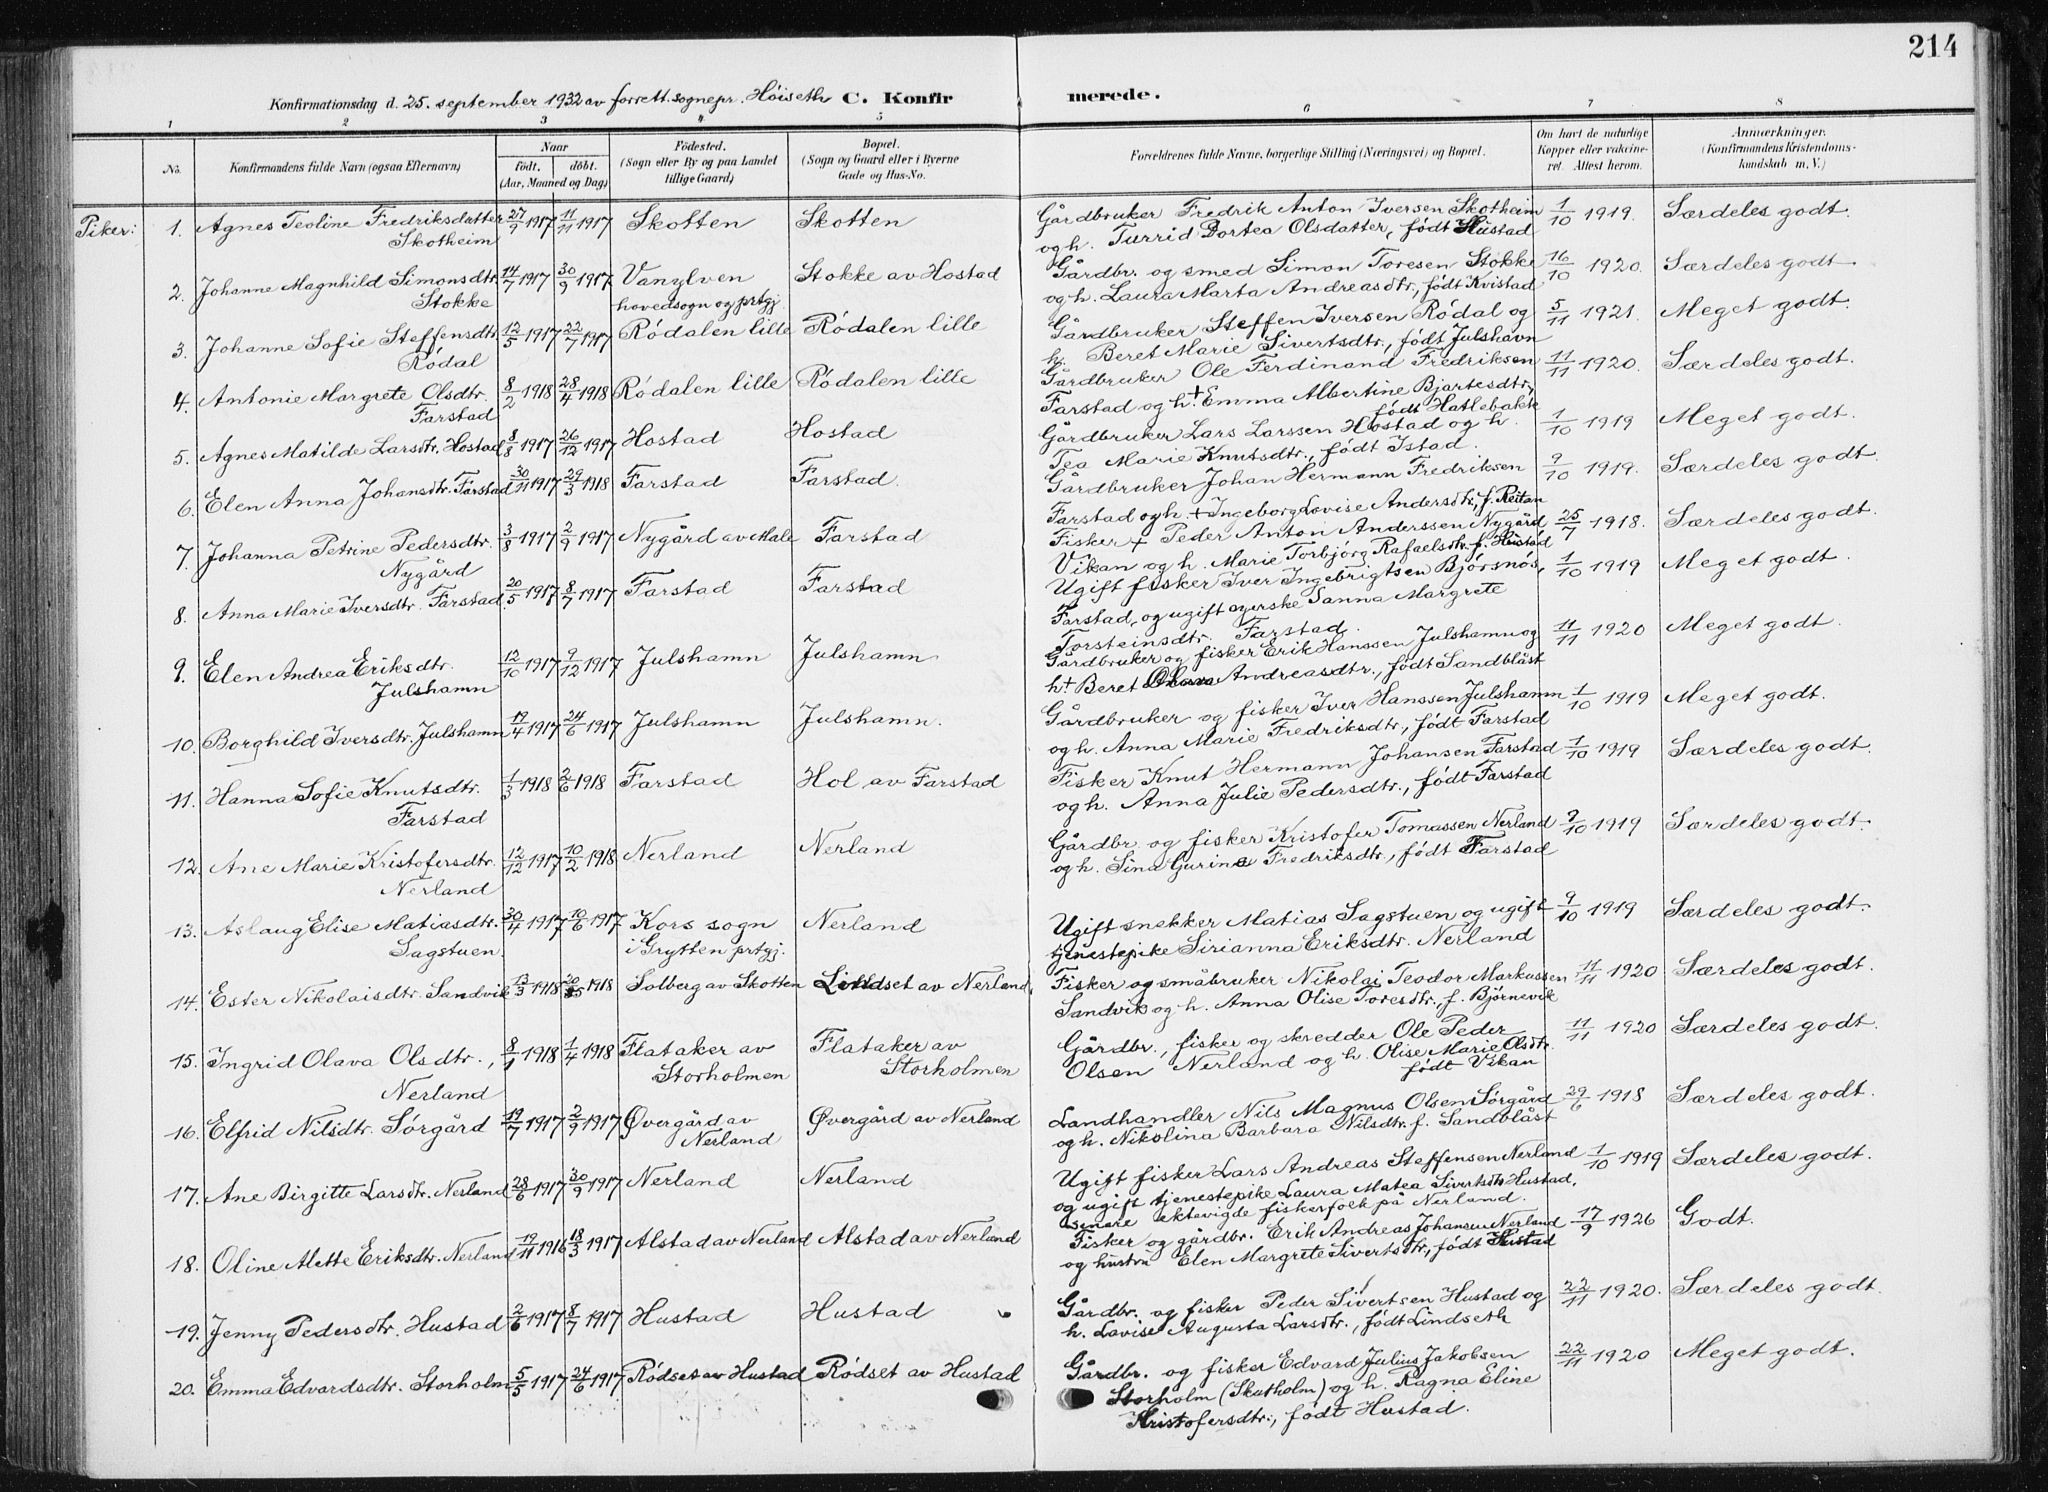 214
Konfirmationsdag d. 25. september 1932 av forrett. sognepr. Höiseth C. Konfirmerede.
1 2 3 4 5 6 7 8
No. Konfirmandens fulde Navn (ogsaa Efternavn) Naar født. døbt. (Aar, Maaned og Dag) Fødested. (Sogn eller By og paa Landet tillige Gaard) Bopæl. (Sogn og Gaard eller i Byerne Gade og Hus-No. Forældrenes fulde Navne, borgerlige Stilling (Næringsvei) og Bopæl. Om havt de naturlige Kopper eller vaccineret. Attest herom. Anmærkninger. (Konfirmandens Kristendomskundskab m. V.)
Piker: 1. Agnes Teoline Fredriksdatter 27/9 1917 11/11 1917 Skotten Skotten Gårdbruker Fredrik Anton Iversen Skotheim 1/10 1919. Særdeles godt.
Skotheim og h. Turrid Dortea Olsdatter, födt Hustad
2. Johanne Magnhild Simonsdtr. 14/7 1917 30/9 1917 Vanylven Stokke av Hostad Gårdbr. og smed Simon Toresen Stokke 16/10 1920. Særdeles godt.
Stokke hovedsogn og prtgj. og h. Laura Marta Andreasdtr., födt Kvistad
3. Johanne Sofie Steffensdtr. 12/5 1917 22/7 1917 Ródalen lille Ródalen lille Gårdbruker Steffen Iversen Ródal og 5/11 1921. Meget godt.
Ródal h. Beret Marie Sivertsdtr., födt Julshavn
4. Antonie Margrete Olsdtr. 8/2 1918 28/4 1918 Ródalen lille Ródalen lille Gårdbruker Ole Ferdinand Fredriksen 11/11 1920. Særdeles godt.
Farstad Farstad og h.+ Emma Albertine Bjartesdtr,
födt Hatlebakk
5. Agnes Matilde Larsdtr. Hostad 8/8 1917 26/12 1917 Hostad Hostad Gårdbruker Lars Larssen Hostad og h. 1/10 1919 Meget godt.
Tea Marie Knutsdtr., födt Istad.
6. Elen Anna Johansdtr. Farstad 30/11 1917 29/3 1918 Farstad Farstad. Gårdbruker Johan Hermann Fredriksen 9/10 1919. Særdeles godt.
Farstad og h. + Ingeborg Lovise Andersdtr., f. Reitan
7. Johanna Petrine Pedersdtr. 3/8 1917 2/9 1917 Nygård av Male Farstad Fisker + Peder Anton Anderssen Nygård 25/7 1918. Særdeles godt.
Nygård Vikan og h. Marie Torbjörg Rafaelsdtr. f. Hustad
8. Anna Marie Iversdtr. Farstad 20/5 1917 8/7 1917 Farstad Farstad Ugift fisker Iver Ingebrigtsen Björsnös, 1/10 1919 Meget godt.
Farstad, og ugift syerske Sanna Margrete
Torsteinsdtr. Farstad.
9. Elen Andrea Eriksdtr. 12/10 1917 9/12 1917 Julshamn Julshamn Gårdbruker og fisker Erik Hanssen Julshamn og 11/11 1920 Meget godt.
Julshamn h+ Beret Olava Andreasdtr., födt Sandblåst
10. Borghild Iversdtr. Julshamn 19/4 1917 24/6 1917 Julshamn Julshamn. Gårdbruker og fisker Iver Hanssen Julshamn 1/10 1919 Meget godt.
og h. Anna Marie Fredriksdtr., födt Farstad
11. Hanna Sofie Knutsdtr. 1/3 1918 2/6 1918 Farstad Hol av Farstad Fisker Knut Hermann Johansen Farstad 1/10 1919 Særdeles godt.
Farstad og h. Anna Julie Pedersdtr., födt Farstad
12. Ane Marie Kristofersdtr. 12/12 1917 10/2 1918 Nerland Nerland Gårdbr. og fisker Kristofer Tomassen Nerland 9/10 1919 Særdeles godt.
Nerland og h. Sina Gurine Fredriksdtr., födt Farstad
13. Aslaug Elise Matiasdtr. 30/4 1917 10/6 1917 Kors sogn Nerland Ugift snekker Matias Sagstuen og ugift 9/10 1919 Særdeles godt.
Sagstuen. i Grytten prtgj. tjenestepike Sirianna Eriksdtr. Nerland
14. Ester Nikolaisdtr. Sandvik 13/3 1918 20/5 1918 Solberg av Skotten Lindset av Nerland, Fisker og småbruker Nikolai Teodor Markussen 11/11 1920 Særdeles godt.
Sandvik og h. Anna Olise Toresdtr., f. Bjørnevik
15. Ingrid Olava Olsdtr., 8/1 1918 1/4 1918 Flataker av Flataker av Gårdbr., fisker og skredder Ole Peder 11/11 1920 Særdeles godt.
Nerland Storholmen Storholmen Olsen Nerland og h. Olise Marie Olsdtr.
födt Vikan
16. Elfrid Nilsdtr. Sórgård 19/7 1917 2/9 1917 Øvergård av Øvergård av Nerland Landhandler Nils Magnus Olsen Sórgård 29/6 1918 Særdeles godt.
Nerland og h. Nikolina Barbara Nilsdtr. f. Sandblåst
17. Ane Birgitte Larsdtr. Nerland 28/6 1917 30/9 1917 Nerland Nerland Ugift fisker Lars Andreas Steffensen Nerland 1/10 1919 Særdeles godt.
og ugift tjenestepike Laura Matea Sivertsdtr Hustad,
senere ektevigde fiskerfolk på Nerland.
18. Oline Alette Eriksdtr. Nerland 19/11 1916 18/3 1917 Alstad av Nerland Alstad av Nerland Fisker og gårdbr. Erik Andreas Johansen Nerland 17/9 1926 Godt.
og hustru Elen Margrete Sivertsdtr., födt Hustad
19. Jenny Pedersdtr. Hustad 2/6 1917 8/7 1917 Hustad Hustad Gårdbr. og fisker Peder Sivertsen Hustad og 22/11 1920. Særdeles godt.
h. Lovise Augusta Larsdtr., födt Lindseth
20. Emma Edvardsdtr. Storholm 5/5 1917 24/6 1917 Ródset av Hustad Ródset av Hustad Gårdbr. og fisker Edvard Julius Jakobsen 22/11 1920 Meget godt.
Storholm (Skatholm) og h. Ragna Eline
Kristofersdtr., födt Hustad.